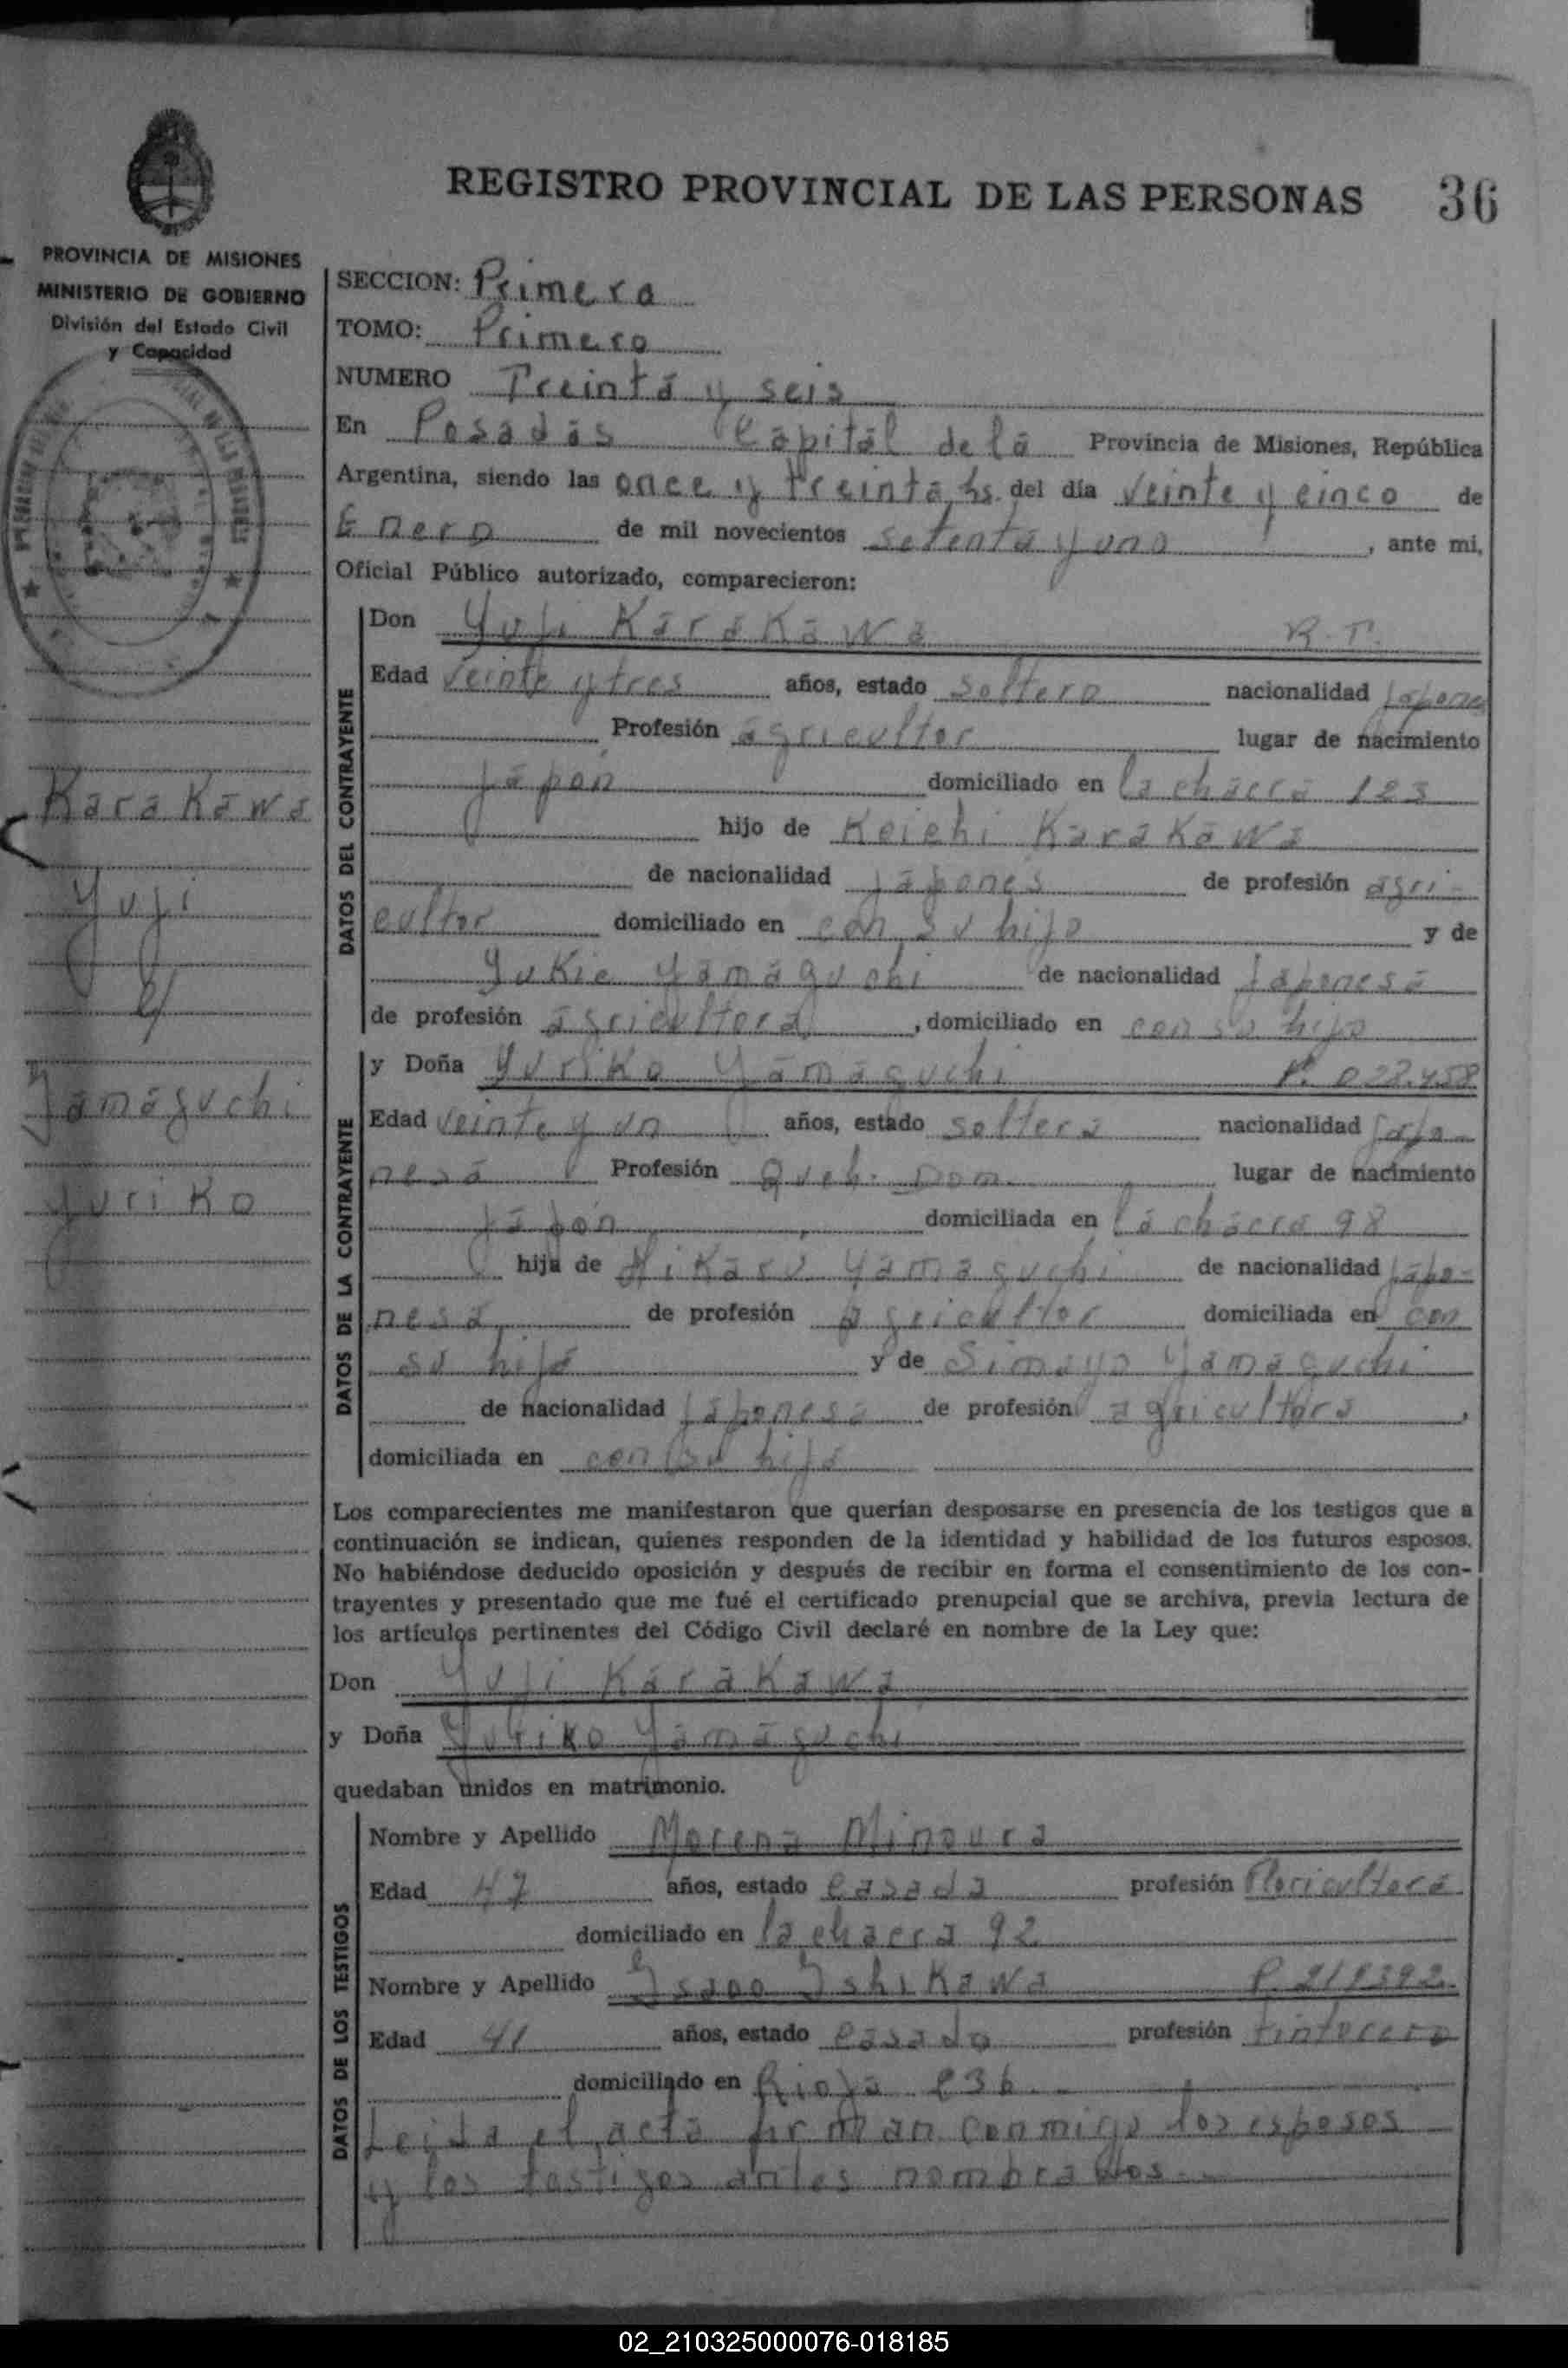 REGISTRO PROVINCIAL DE LAS PERSONAS 36
PROVINCIA DE MISIONES
MINISTERIO DE GOBIERNO
División del Estado Civil
y Capacidad
SECCION: Primera
TOMO: Primero
NUMERO Treinta y seis
En Posadas Capital de la Provincia de Misiones, República
Argentina, siendo las once y treinta hs. del día veinte y cinco de
Enero de mil novecientos setenta y uno, ante mi,
Oficial Público autorizado, comparecieron:
Karakawa
Yuji
y
Yamaguchi
Yuriko
DATOS DEL CONTRAYENTE
Don Yuji Karakawa R.T.
Edad veinte y tres años, estado soltero nacionalidad japones
Profesión agricultor lugar de nacimiento
Japón domiciliado en la chacra 123
hijo de Keichi Karakawa
de nacionalidad japones de profesión agri-
cultor domiciliado en con su hijo y de
Yukie Yamaguchi de nacionalidad japonesa
de profesión agricultora, domiciliado en con su hijo
DATOS DE LA CONTRAYENTE
y Doña Yuriko Yamaguchi P. 028.458
Edad veinte y un años, estado soltera nacionalidad japo-
nesa Profesión Queh. Dom. lugar de nacimiento
Japón domiciliada en la chacra 98
hija de Hikaru Yamaguchi de nacionalidad japo-
nesa, de profesión agricultor domiciliada en con
su hija y de Simayo Yamaguchi
de nacionalidad japonesa de profesión agricultora,
domiciliada en con su hija
Los comparecientes me manifestaron que querían desposarse en presencia de los testigos que a
continuación se indican, quienes responden de la identidad y habilidad de los futuros esposos.
No habiéndose deducido oposición y después de recibir en forma el consentimiento de los con-
trayentes y presentado que me fué el certificado prenupcial que se archiva, previa lectura de
los artículos pertinentes del Código Civil declaré en nombre de la Ley que:
Don Yuji Karakawa
y Doña Yuriko Yamaguchi
quedaban unidos en matrimonio.
DATOS DE LOS TESTIGOS
Nombre y Apellido Morena Minoura
Edad 47 años, estado casada profesión Floricultora
domiciliado en la chacra 92
Nombre y Apellido Isano Ishikawa P. 211392
Edad 41 años, estado casado profesión tintorero
domiciliado en Rioja 236
Leida el acta firman conmigo los esposos
y los testigos antes nombrados.
02_210325000076-018185